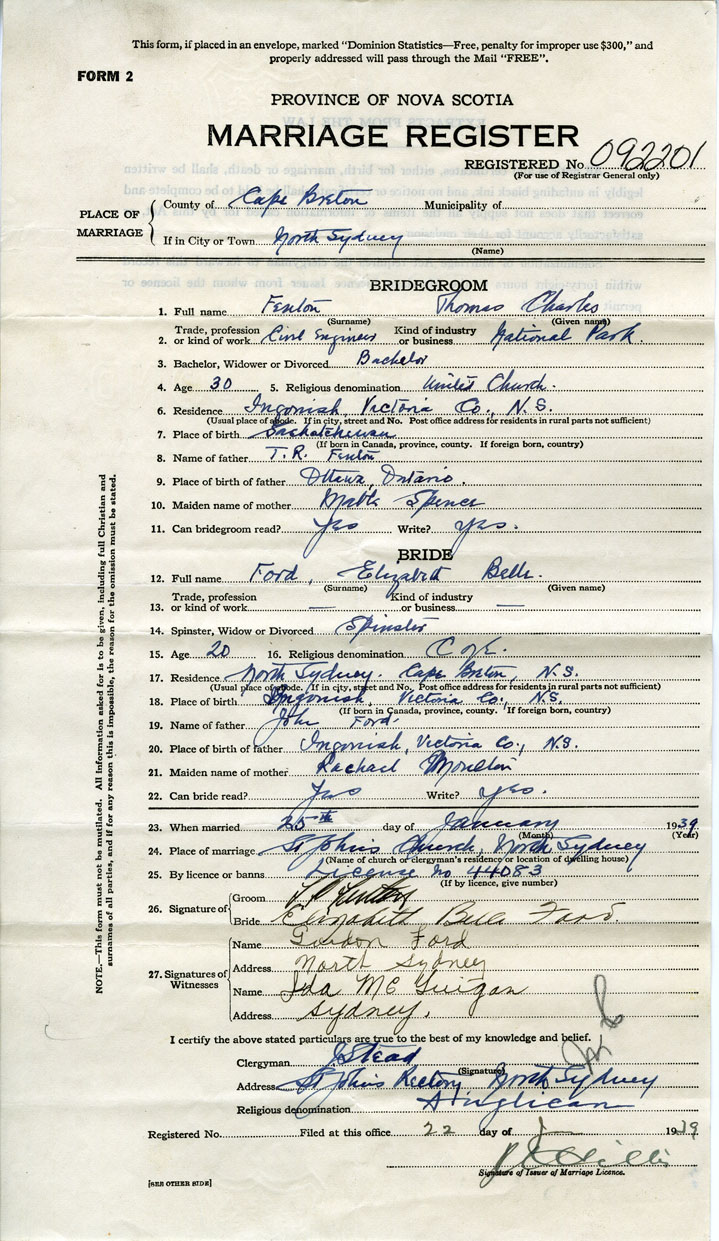 This form, if placed in an envelope, marked "Dominion Statistics—Free, penalty for improper use $300," and
properly addressed will pass through the Mail "FREE".
FORM 2
PROVINCE OF NOVA SCOTIA
MARRIAGE REGISTER
REGISTERED No. 092201
(For use of Registrar General only)
PLACE OF MARRIAGE
County of Cape Breton Municipality of
If in City or Town North Sydney
(Name)
BRIDEGROOM
1. Full name Fenton Thomas Charles
(Surname) (Given name)
2. Trade, profession or kind of work Civil Engineer Kind of industry or business National Park.
3. Bachelor, Widower or Divorced Bachelor
4. Age 30 5. Religious denomination United Church.
6. Residence Ingonish, Victoria Co., N.S.
(Usual place of abode. If in city, street and No. Post office address for residents in rural parts not sufficient)
7. Place of birth Saskatchewan
(If born in Canada, province, county. If foreign born, country)
8. Name of father T.R. Fenton
9. Place of birth of father Ottawa, Ontario.
10. Maiden name of mother Mable Spence
11. Can bridegroom read? Yes Write? Yes.
BRIDE
12. Full name Ford, Elizabeth Belle.
(Surname) (Given name)
13. Trade, profession or kind of work — Kind of industry or business —
14. Spinster, Widow or Divorced Spinster
15. Age 20 16. Religious denomination C of E.
17. Residence North Sydney. Cape Breton, N.S.
(Usual place of abode. If in city, street and No. Post office address for residents in rural parts not sufficient)
18. Place of birth Ingonish, Victoria Co., N.S.
(If born in Canada, province, county. If foreign born, country)
19. Name of father John Ford.
20. Place of birth of father Ingonish, Victoria Co., N.S.
21. Maiden name of mother Rachael
22. Can bride read? Yes Write? Yes.
23. When married 25th day of January 1939
(Month) (Year)
24. Place of marriage St John's Church, North Sydney
(Name of church or clergyman's residence or location of dwelling house)
25. By licence or banns License no 44083
(If by licence, give number)
26. Signature of
Groom Fenton
Bride Elizabeth Belle Ford.
27. Signatures of Witnesses
Name Gordon Ford
Address North Sydney
Name Ida McGuigan
Address Sydney.
I certify the above stated particulars are true to the best of my knowledge and belief.
Clergyman Stead
(Signature)
Address St John's Rectory North Sydney
Religious denomination Anglican
Registered No. Filed at this office 22 day of 1939
Signature of Issuer of Marriage Licence.
[SEE OTHER SIDE]
NOTE.—This form must not be mutilated. All information asked for is to be given, including full Christian and
surnames of all parties, and if for any reason this is impossible, the reason for the omission must be stated.